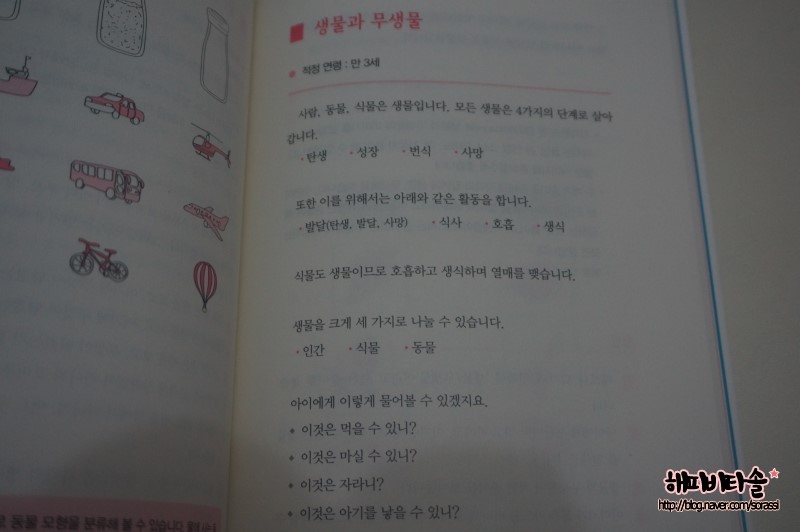 생물과 무생물
적정 연령 : 만 3세
사람, 동물, 식물은 생물입니다. 모든 생물은 4가지의 단계로 살아
갑니다.
• 탄생 • 성장 • 번식 • 사망
또한 이를 위해서는 아래와 같은 활동을 합니다.
• 발달(탄생, 발달, 사망) • 식사 • 호흡 • 생식
식물도 생물이므로 호흡하고 생식하며 열매를 맺습니다.
생물을 크게 세 가지로 나눌 수 있습니다.
• 인간 • 식물 • 동물
아이에게 이렇게 물어볼 수 있겠지요.
• 이것은 먹을 수 있니?
• 이것은 마실 수 있니?
• 이것은 자라니?
• 이것은 아기를 낳을 수 있니?
해피비타솔
http://blog.naver.com/sorassi